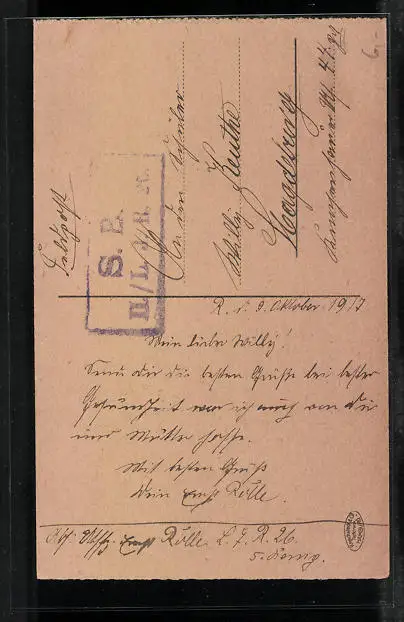 Feldpost
S. B.
II./L. I. R. 26.
An den Schüler
Willy
Magdeburg
R. d. 9. Oktober 1917
Mein lieber Willy!
Sende dir die besten Grüße bei bester
Gesundheit was ich auch von dir
und Mutter hoffe.
Mit besten Gruß
Dein Ernst Rölle.
Abs: Uffz. Ernst Rölle L. I. R. 26.
5. Komp.
6,-